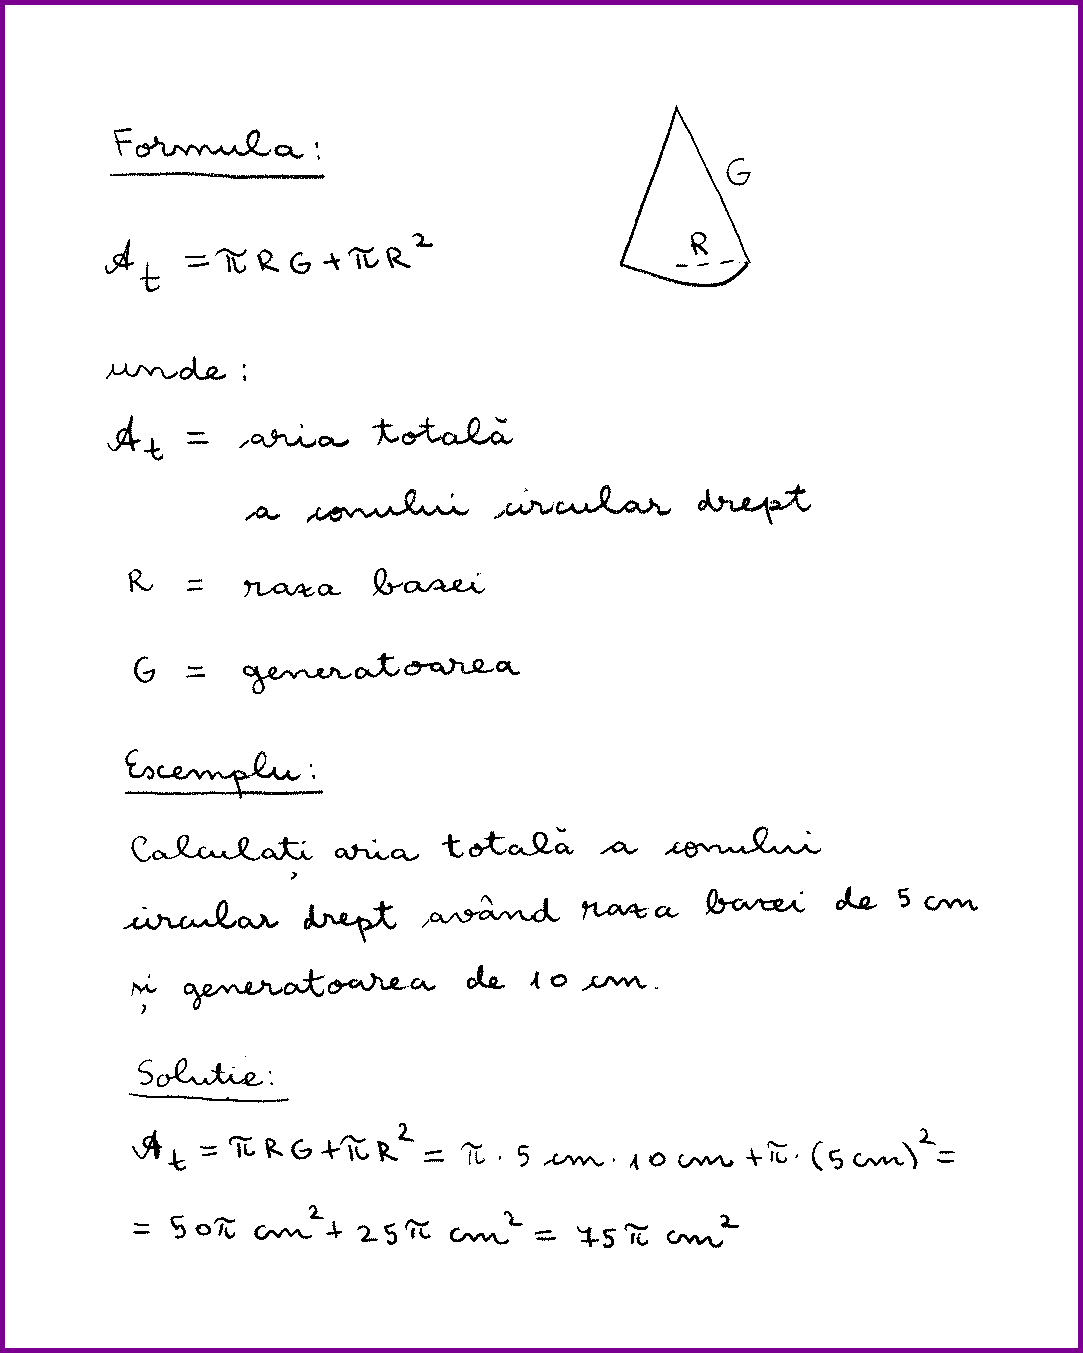 Formula:
G
R
A_t = πRG + πR²
unde:
A_t = aria totală
a conului circular drept
R = raza bazei
G = generatoarea
Exemplu:
Calculați aria totală a conului
circular drept având raza bazei de 5 cm
și generatoarea de 10 cm.
Solutie:
A_t = πRG + πR² = π · 5 cm · 10 cm + π · (5 cm)² =
= 50π cm² + 25π cm² = 75π cm²